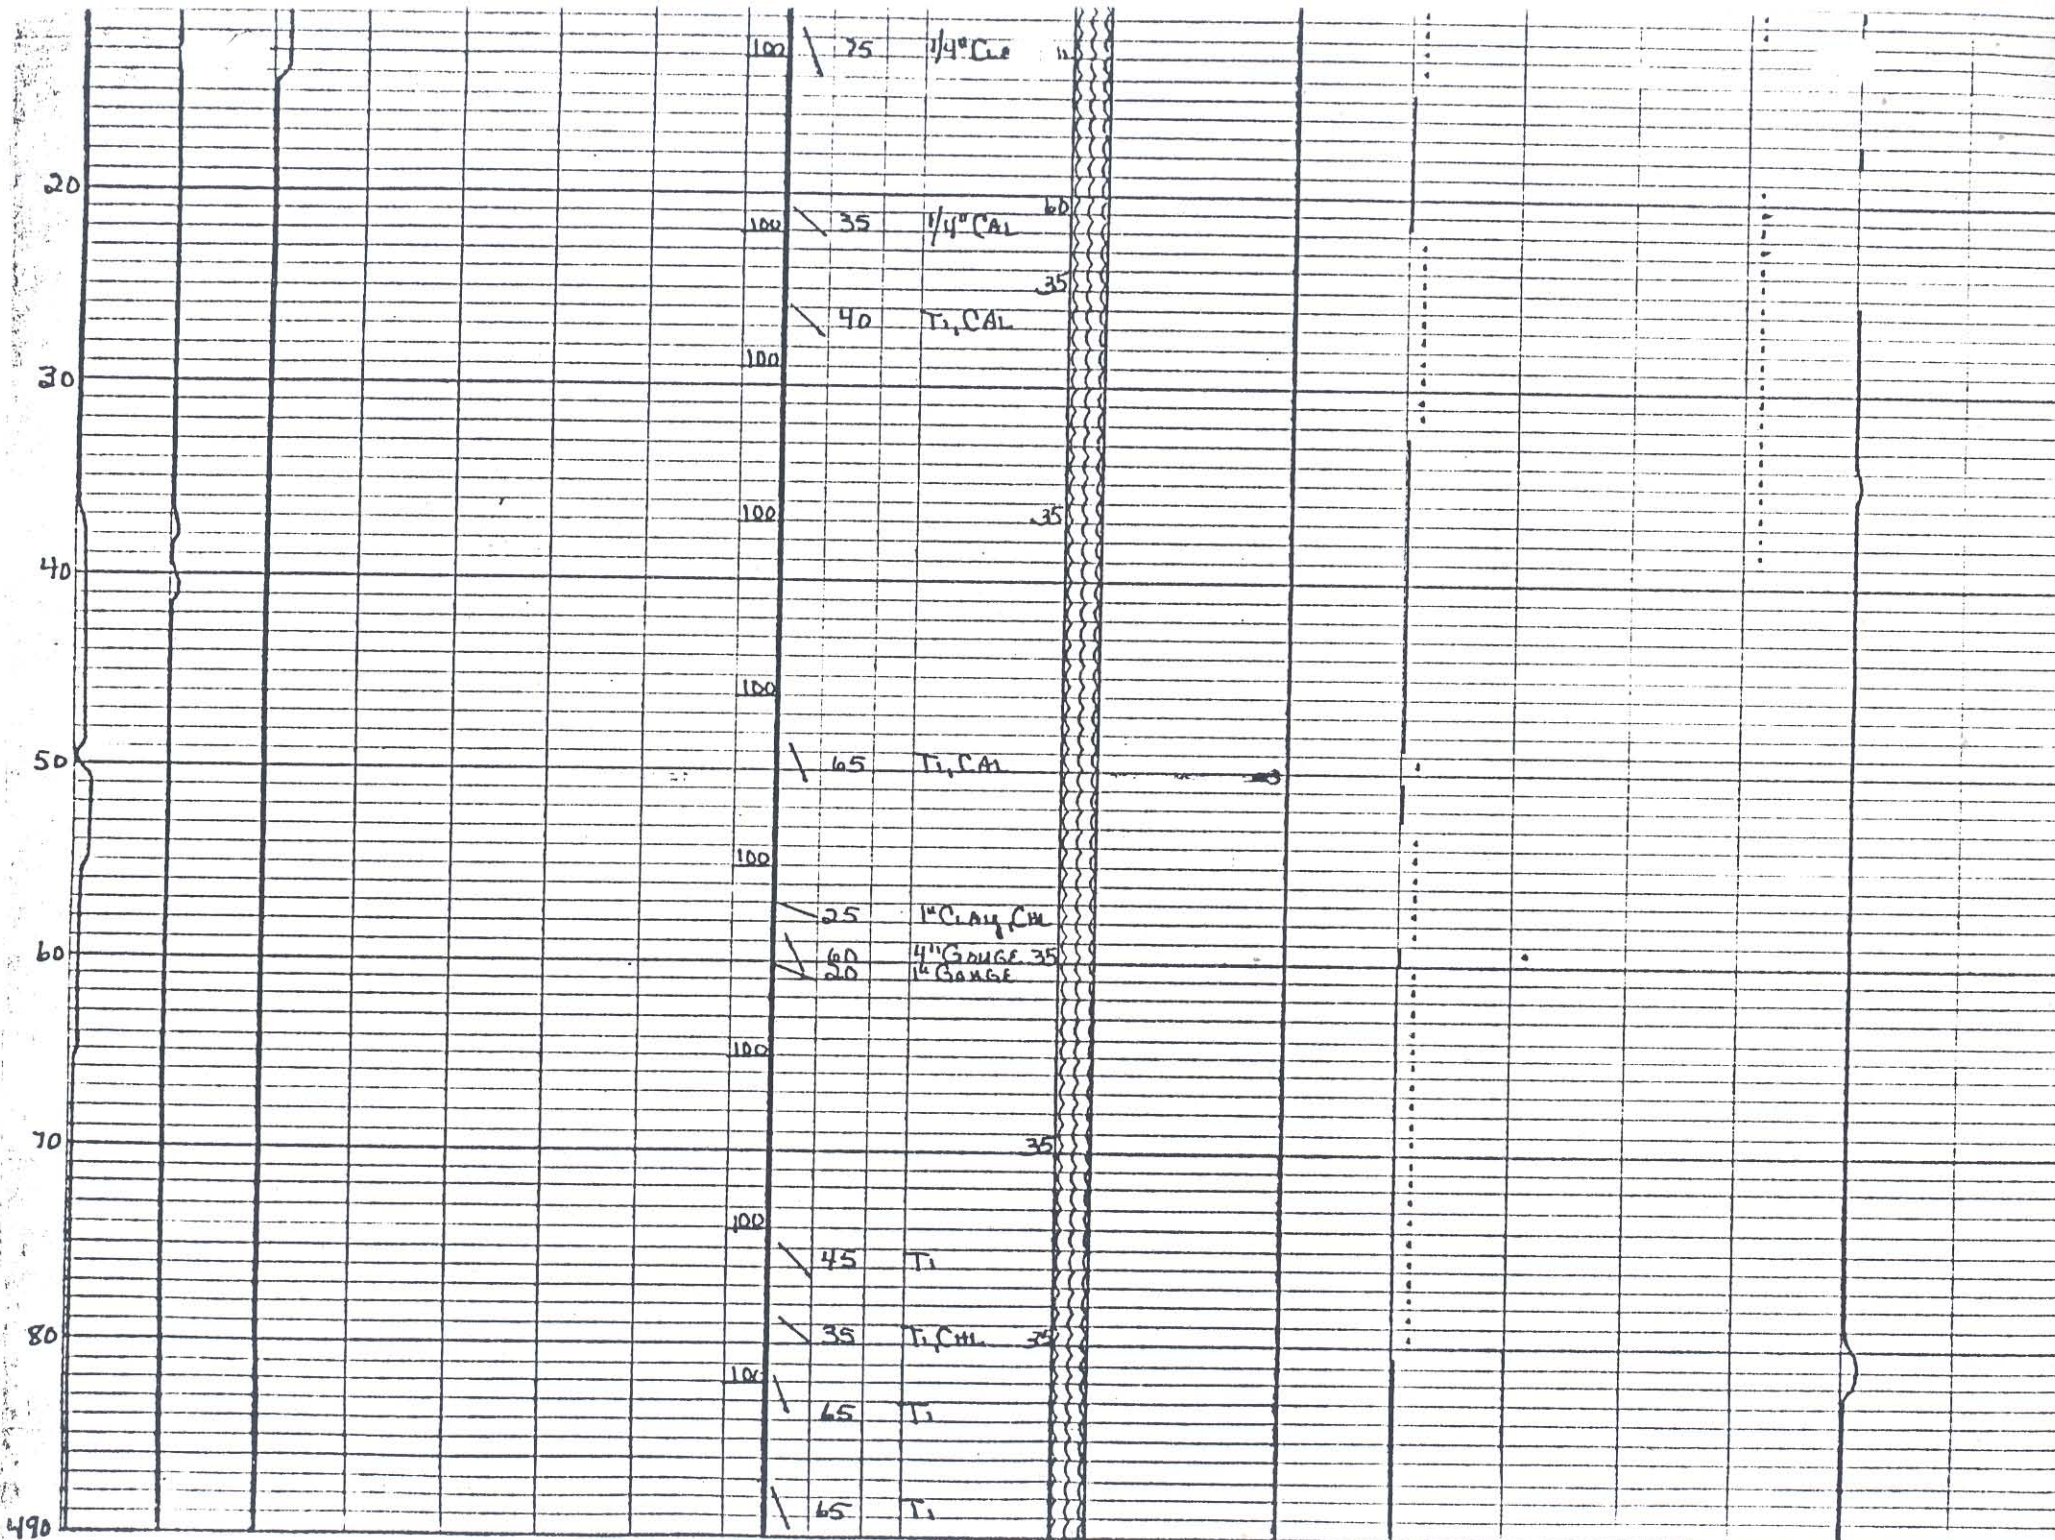 100 75 1/4"
20
60
100 35 1/4" CAL
35
40 Ti, CAL
100
30
100 35
40
100
50 65 Ti, CAL
100
25 1" CLAY, CHL
60 60 4" GOUGE 35
20 1" GOUGE
100
70 35
100
45 Ti
80 35 Ti, CHL 35
100
65 Ti
490 65 Ti